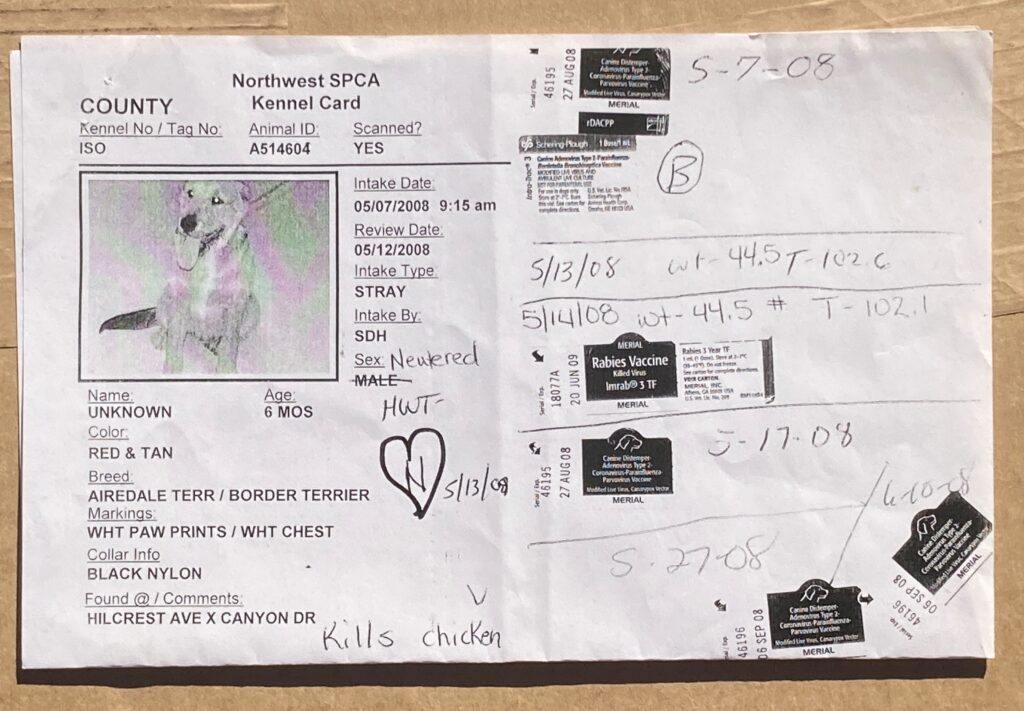 Northwest SPCA
Kennel Card
COUNTY
Kennel No / Tag No:
ISO
Animal ID:
A514604
Scanned?
YES
Intake Date:
05/07/2008 9:15 am
Review Date:
05/12/2008
Intake Type:
STRAY
Intake By:
SDH
Sex: Newtered
MALE
HWT-
N
5/13/08
Name:
UNKNOWN
Age:
6 MOS
Color:
RED & TAN
Breed:
AIREDALE TERR / BORDER TERRIER
Markings:
WHT PAW PRINTS / WHT CHEST
Collar Info
BLACK NYLON
Found @ / Comments:
HILCREST AVE X CANYON DR
Kills chicken
Serial / Exp.
46195
27 AUG 08
Canine Distemper-
Adenovirus Type 2-
Coronavirus-Parainfluenza-
Parvovirus Vaccine
Modified Live Virus, Canarypox Vector
MERIAL
rDACPP
5-7-08
Schering-Plough 1 Dose/1 mL
Intra-Trac® 3
Canine Adenovirus Type 2-Parainfluenza-
Bordetella Bronchiseptica Vaccine
MODIFIED LIVE VIRUS AND
AVIRULENT LIVE CULTURE
B
5/13/08 wt- 44.5 T-102.6
5/14/08 wt- 44.5 # T- 102.1
18077A
20 JUN 09
MERIAL
Rabies Vaccine
Killed Virus
Imrab® 3 TF
MERIAL
Rabies 3 Year TF
1 mL (1 Dose). Store at 2-7°C
(35-45°F). Do not freeze.
See carton for complete directions.
MERIAL, INC.
Athens, GA 30601 USA
Serial / Exp.
46195
27 AUG 08
Canine Distemper-
Adenovirus Type 2-
Coronavirus-Parainfluenza-
Parvovirus Vaccine
Modified Live Virus, Canarypox Vector
MERIAL
5-17-08
5-27-08
46196
06 SEP 08
Canine Distemper-
Adenovirus Type 2-
Coronavirus-Parainfluenza-
Parvovirus Vaccine
Modified Live Virus, Canarypox Vector
MERIAL
6-10-08
Serial / Exp.
46196
06 SEP 08
Canine Distemper-
Adenovirus Type 2-
Coronavirus-Parainfluenza-
Parvovirus Vaccine
Modified Live Virus, Canarypox Vector
MERIAL